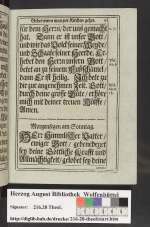 Gebet wenn man zur Kirchen gehet.
für dem HErrn, der uns gemacht
hat. Dann er ist unser Gott,
und wir das Volck seiner Weyde,
und Schaafe seiner Heerde. Er-
hebet den HErrn unsern Gott,
betet an zu seinem Fußschemel,
dann Er ist heilig. Ich bete zu
dir zur angenehmen Zeit, Gott,
durch deine grosse Güte, erhöre
mich mit deiner treuen Hülffe,
Amen.
Morgensegen am Sonntag.
HErr himmlischer Vatter,
ewiger Gott, gebenedeyet
sey deine Göttliche Krafft und
Allmächtigkeit, gelobet sey deine
Herzog August Bibliothek Wolfenbüttel
Signatur: 216.28 Theol.
http://diglib.hab.de/drucke/216-28-theol/start.htm